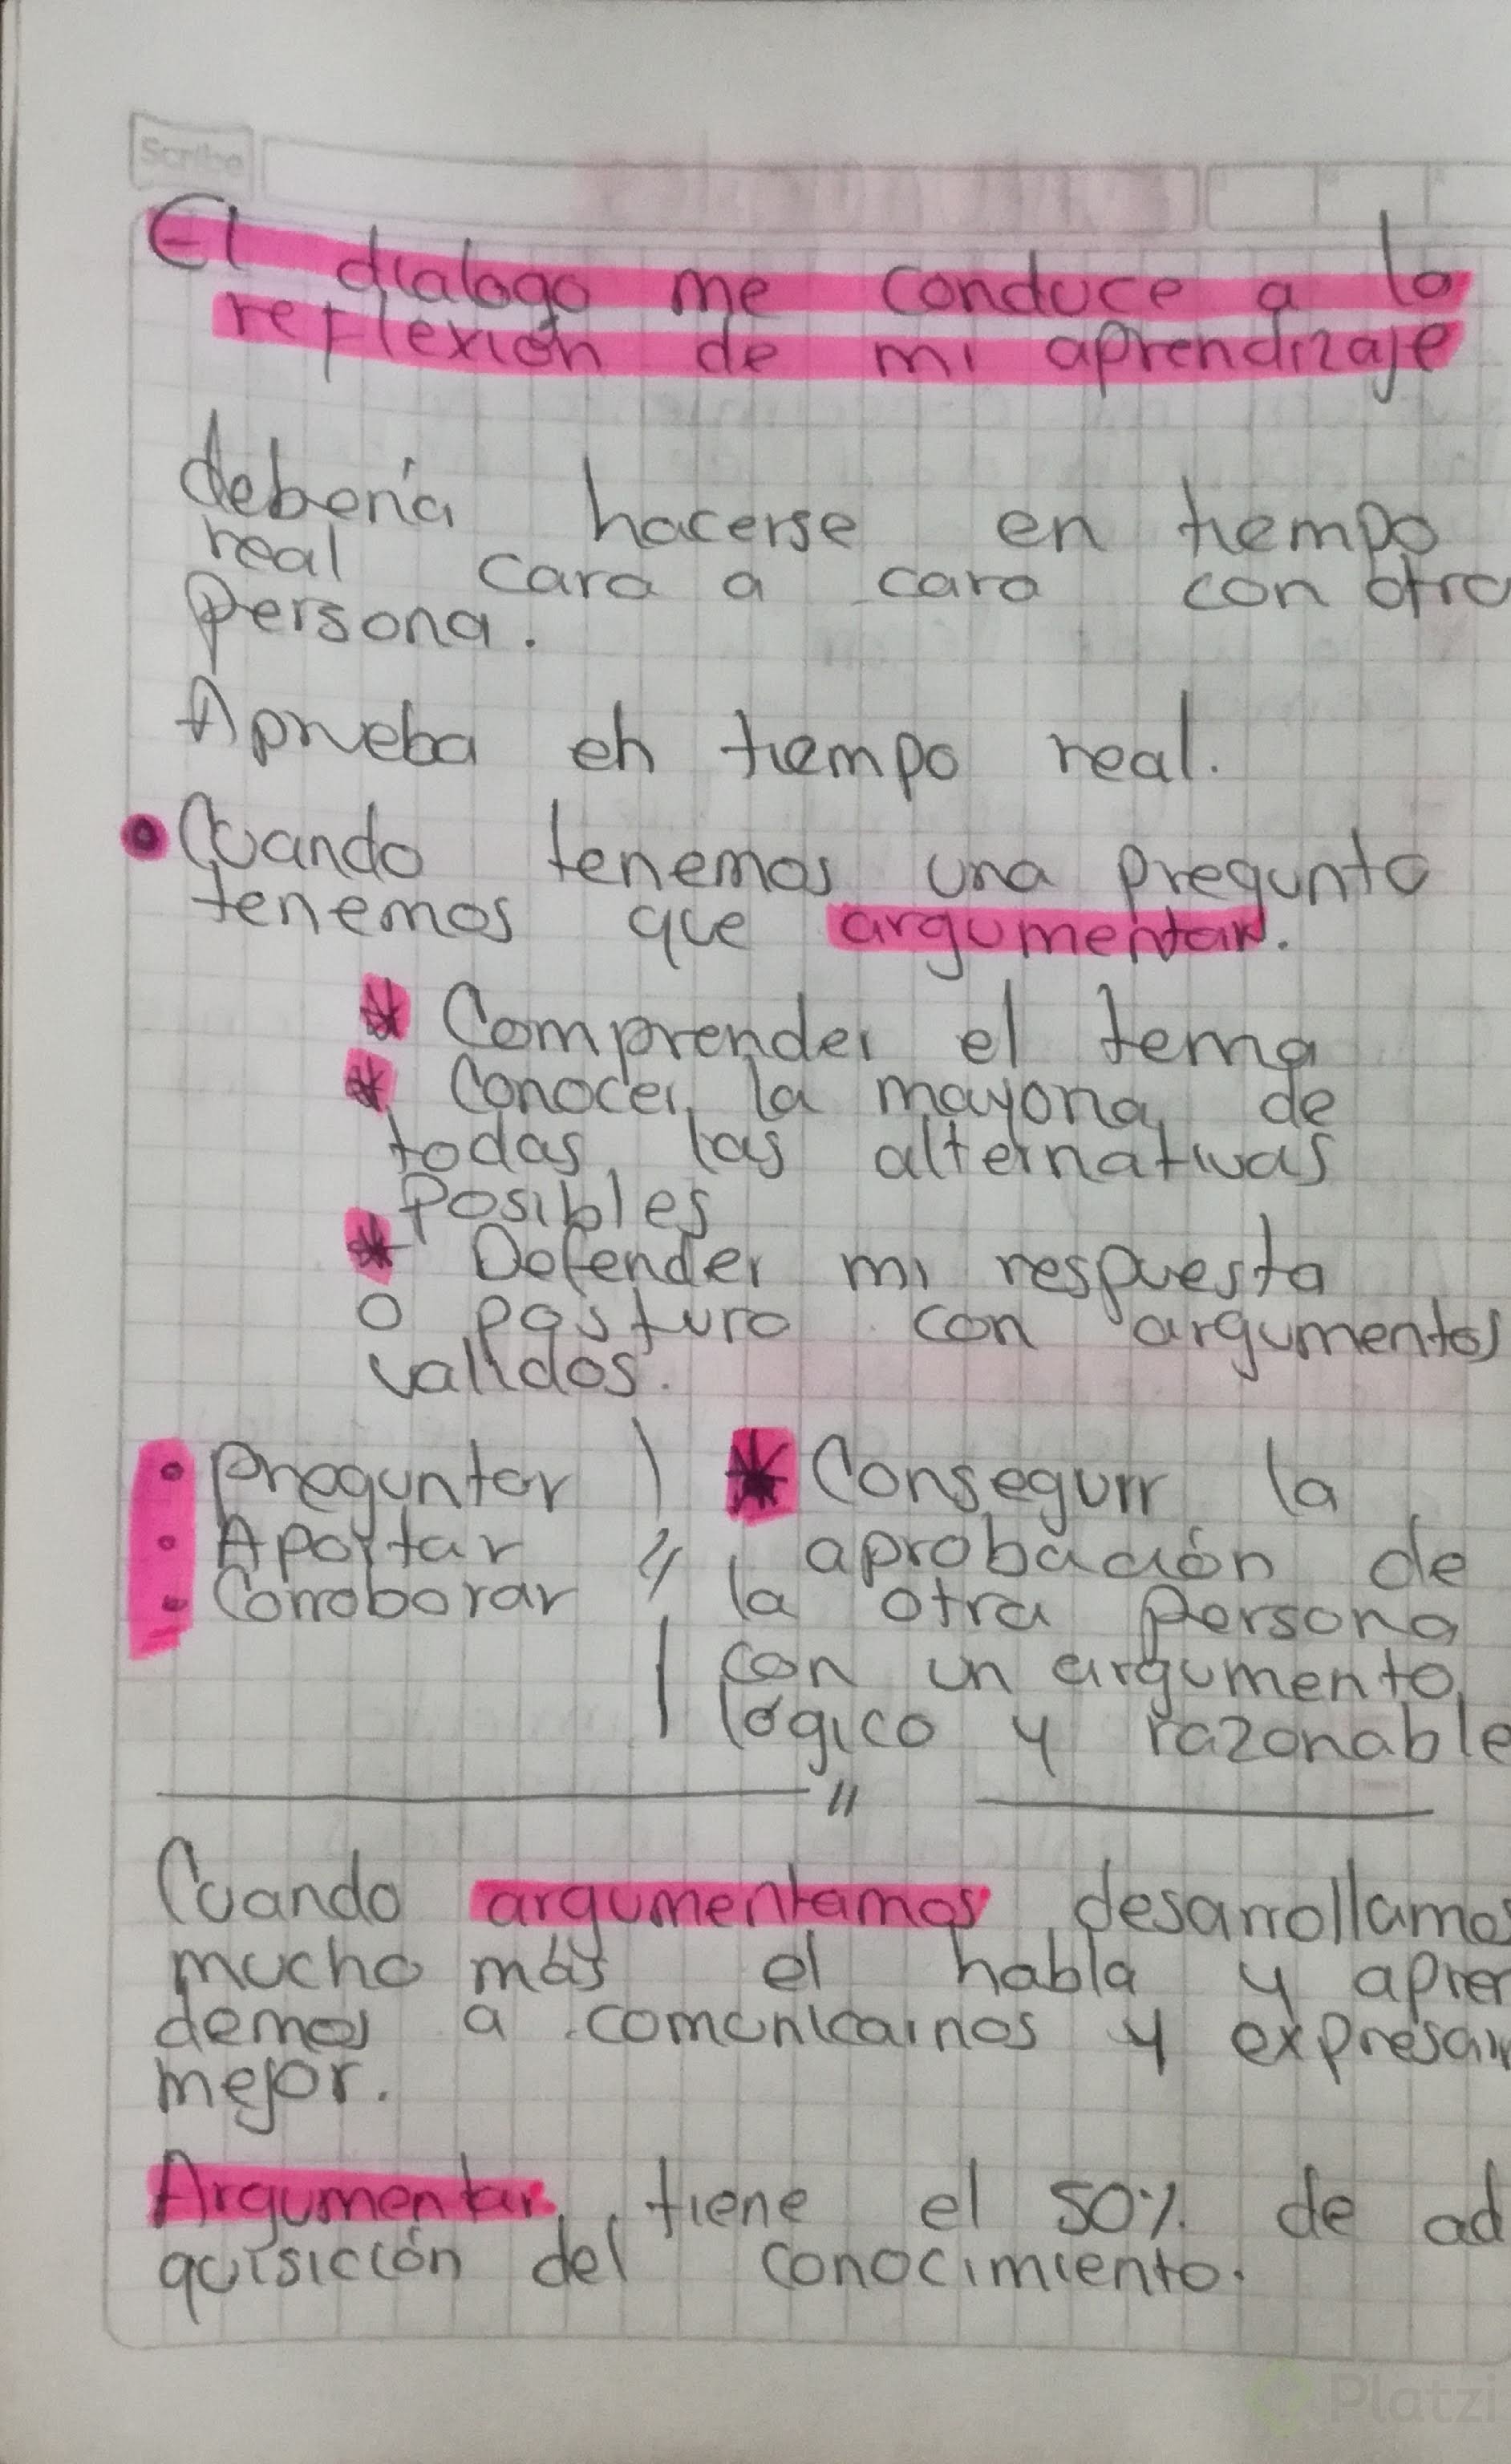 Scribe
El dialogo me conduce a la
reflexión de mi aprendizaje
debería hacerse en tiempo
real cara a cara con otra
persona.
Aprueba en tiempo real.
Cuando tenemos una pregunta
tenemos que argumentar.
* Comprender el tema
* Conocer la mayoria de
todas las alternativas
posibles
* Defender mi respuesta
o postura con argumentos
validos.
• Preguntar
• Aportar
• Corroborar
* Conseguir la
aprobación de
la otra persona
con un argumento
lógico y razonable
Cuando argumentamos desarrollamos
mucho más el habla y apren
demos a comunicarnos y expresar
mejor.
Argumentar tiene el 50% de ad
quisición del conocimiento.
Platzi